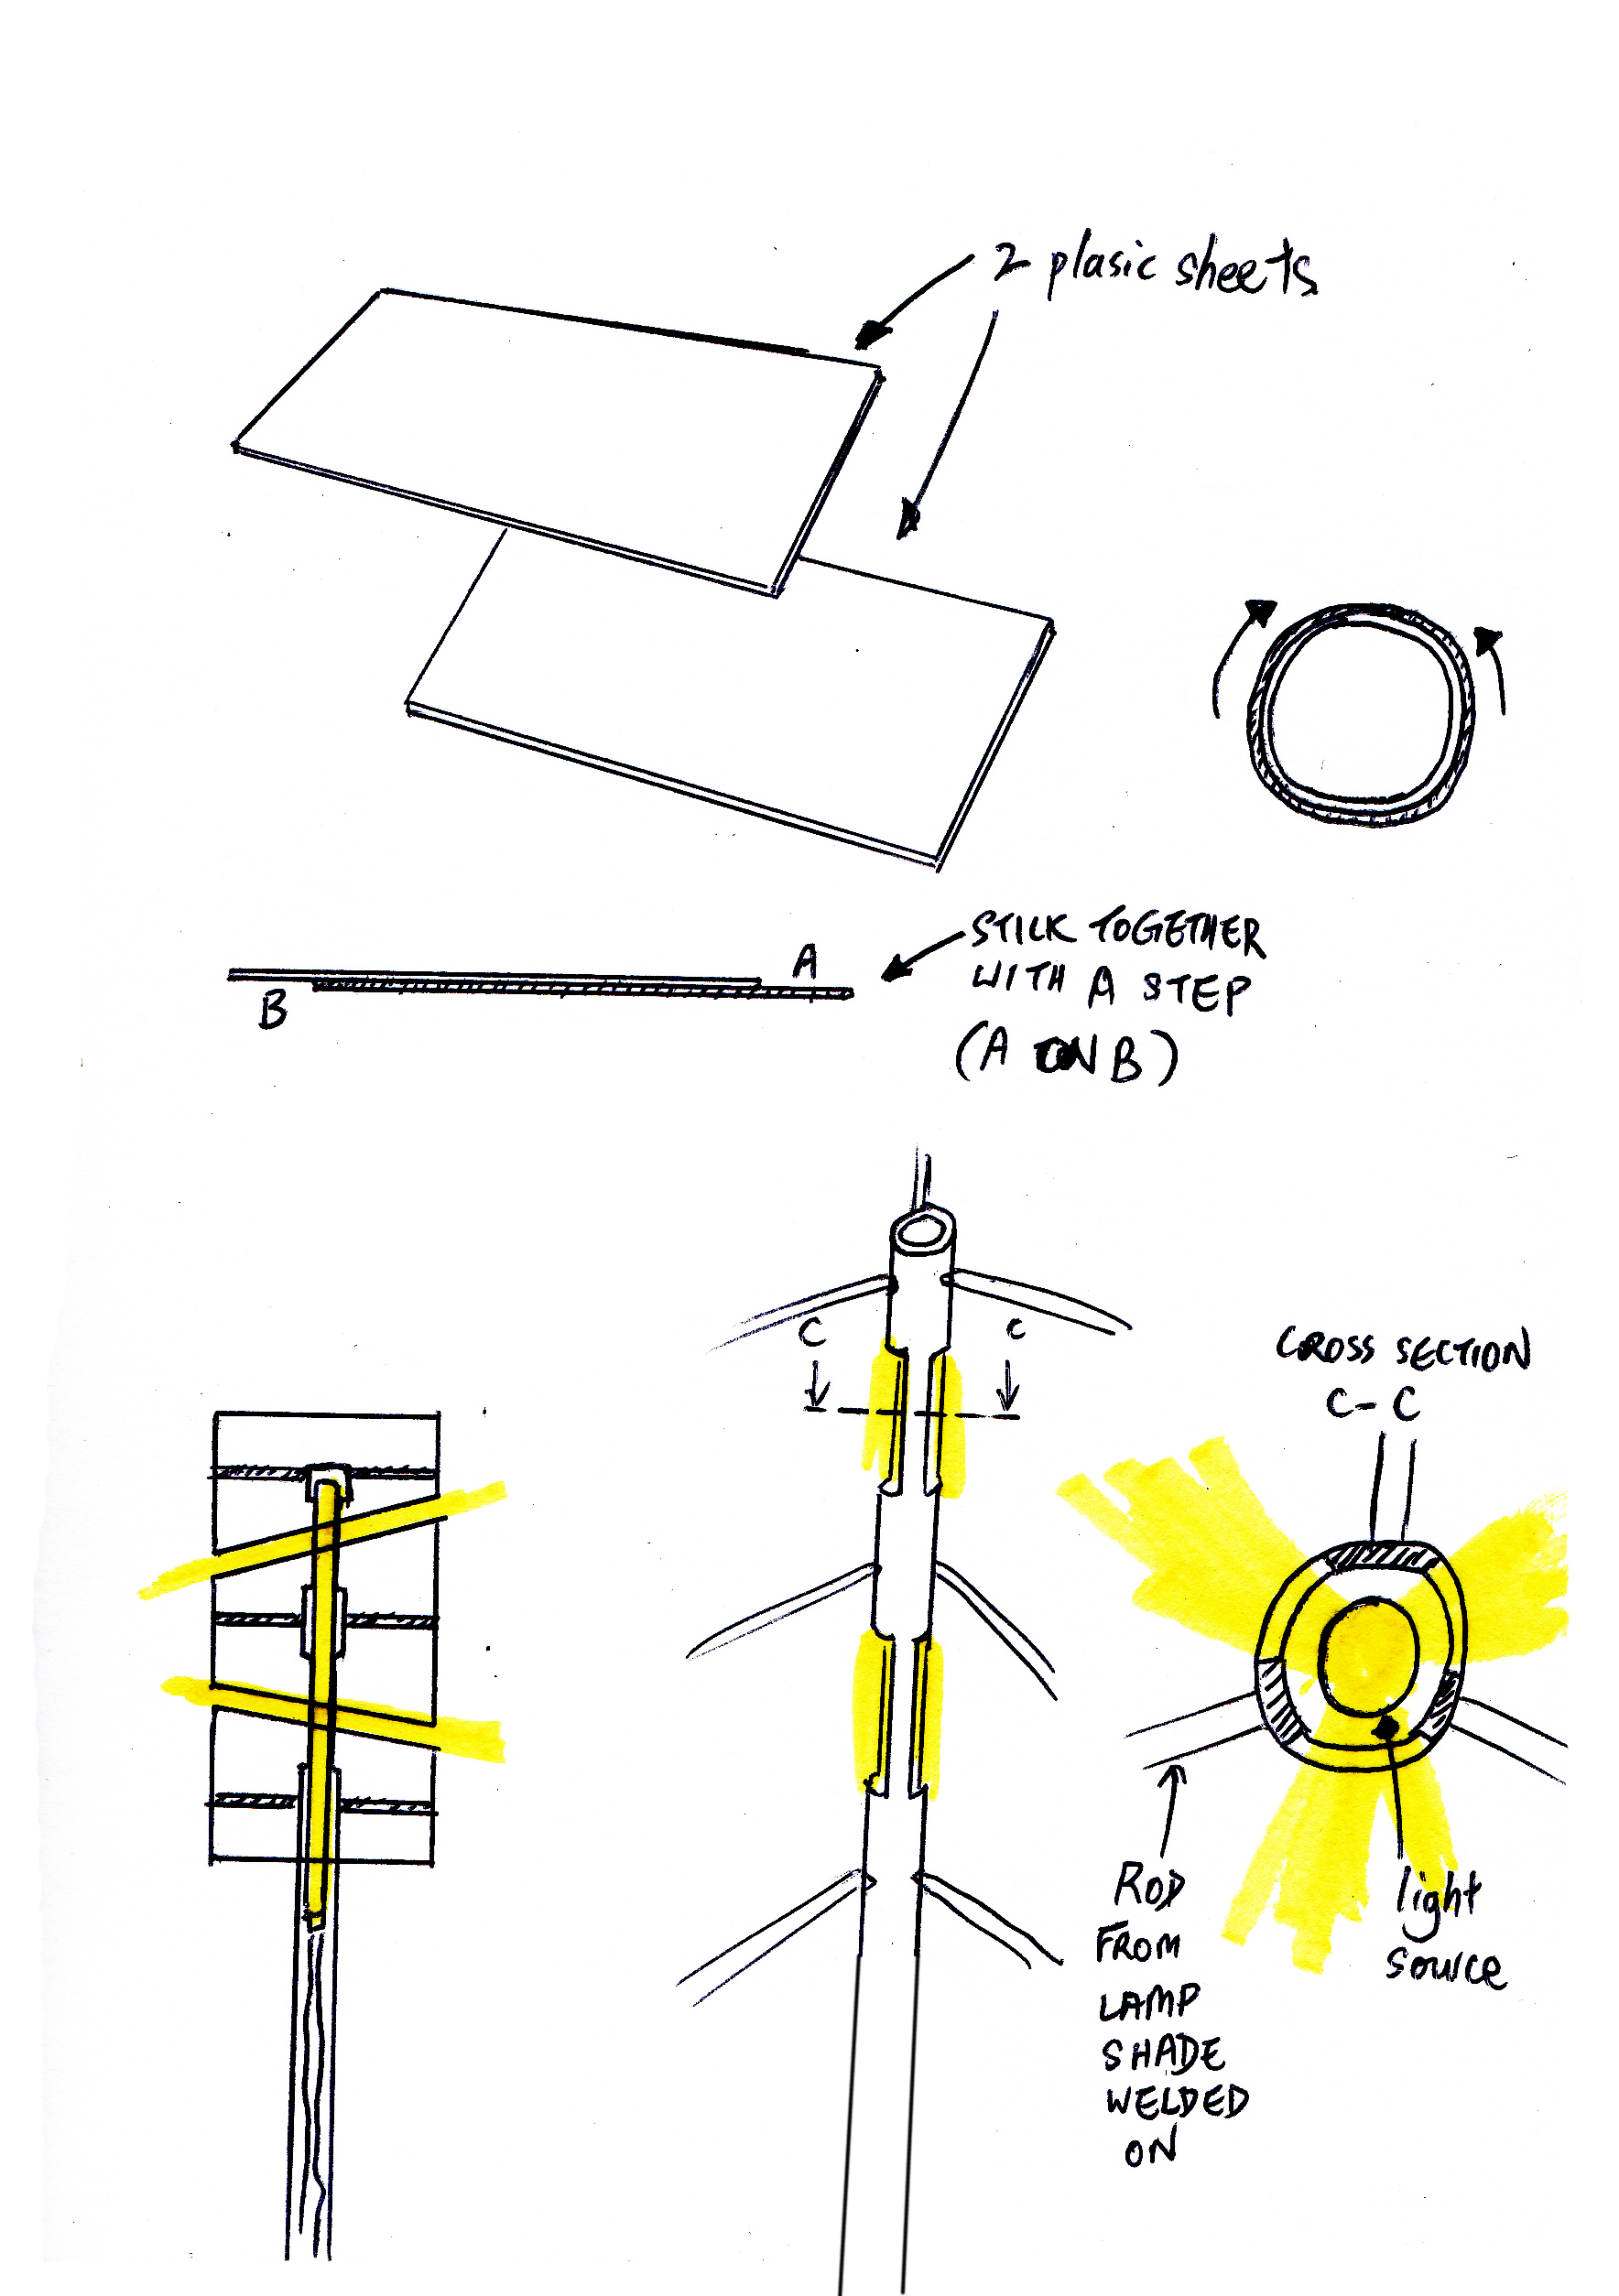 2 plasic sheets
A
B
STICK TOGETHER
WITH A STEP
(A ON B)
C
C
CROSS SECTION
C-C
ROD
FROM
LAMP
SHADE
WELDED
ON
light
source